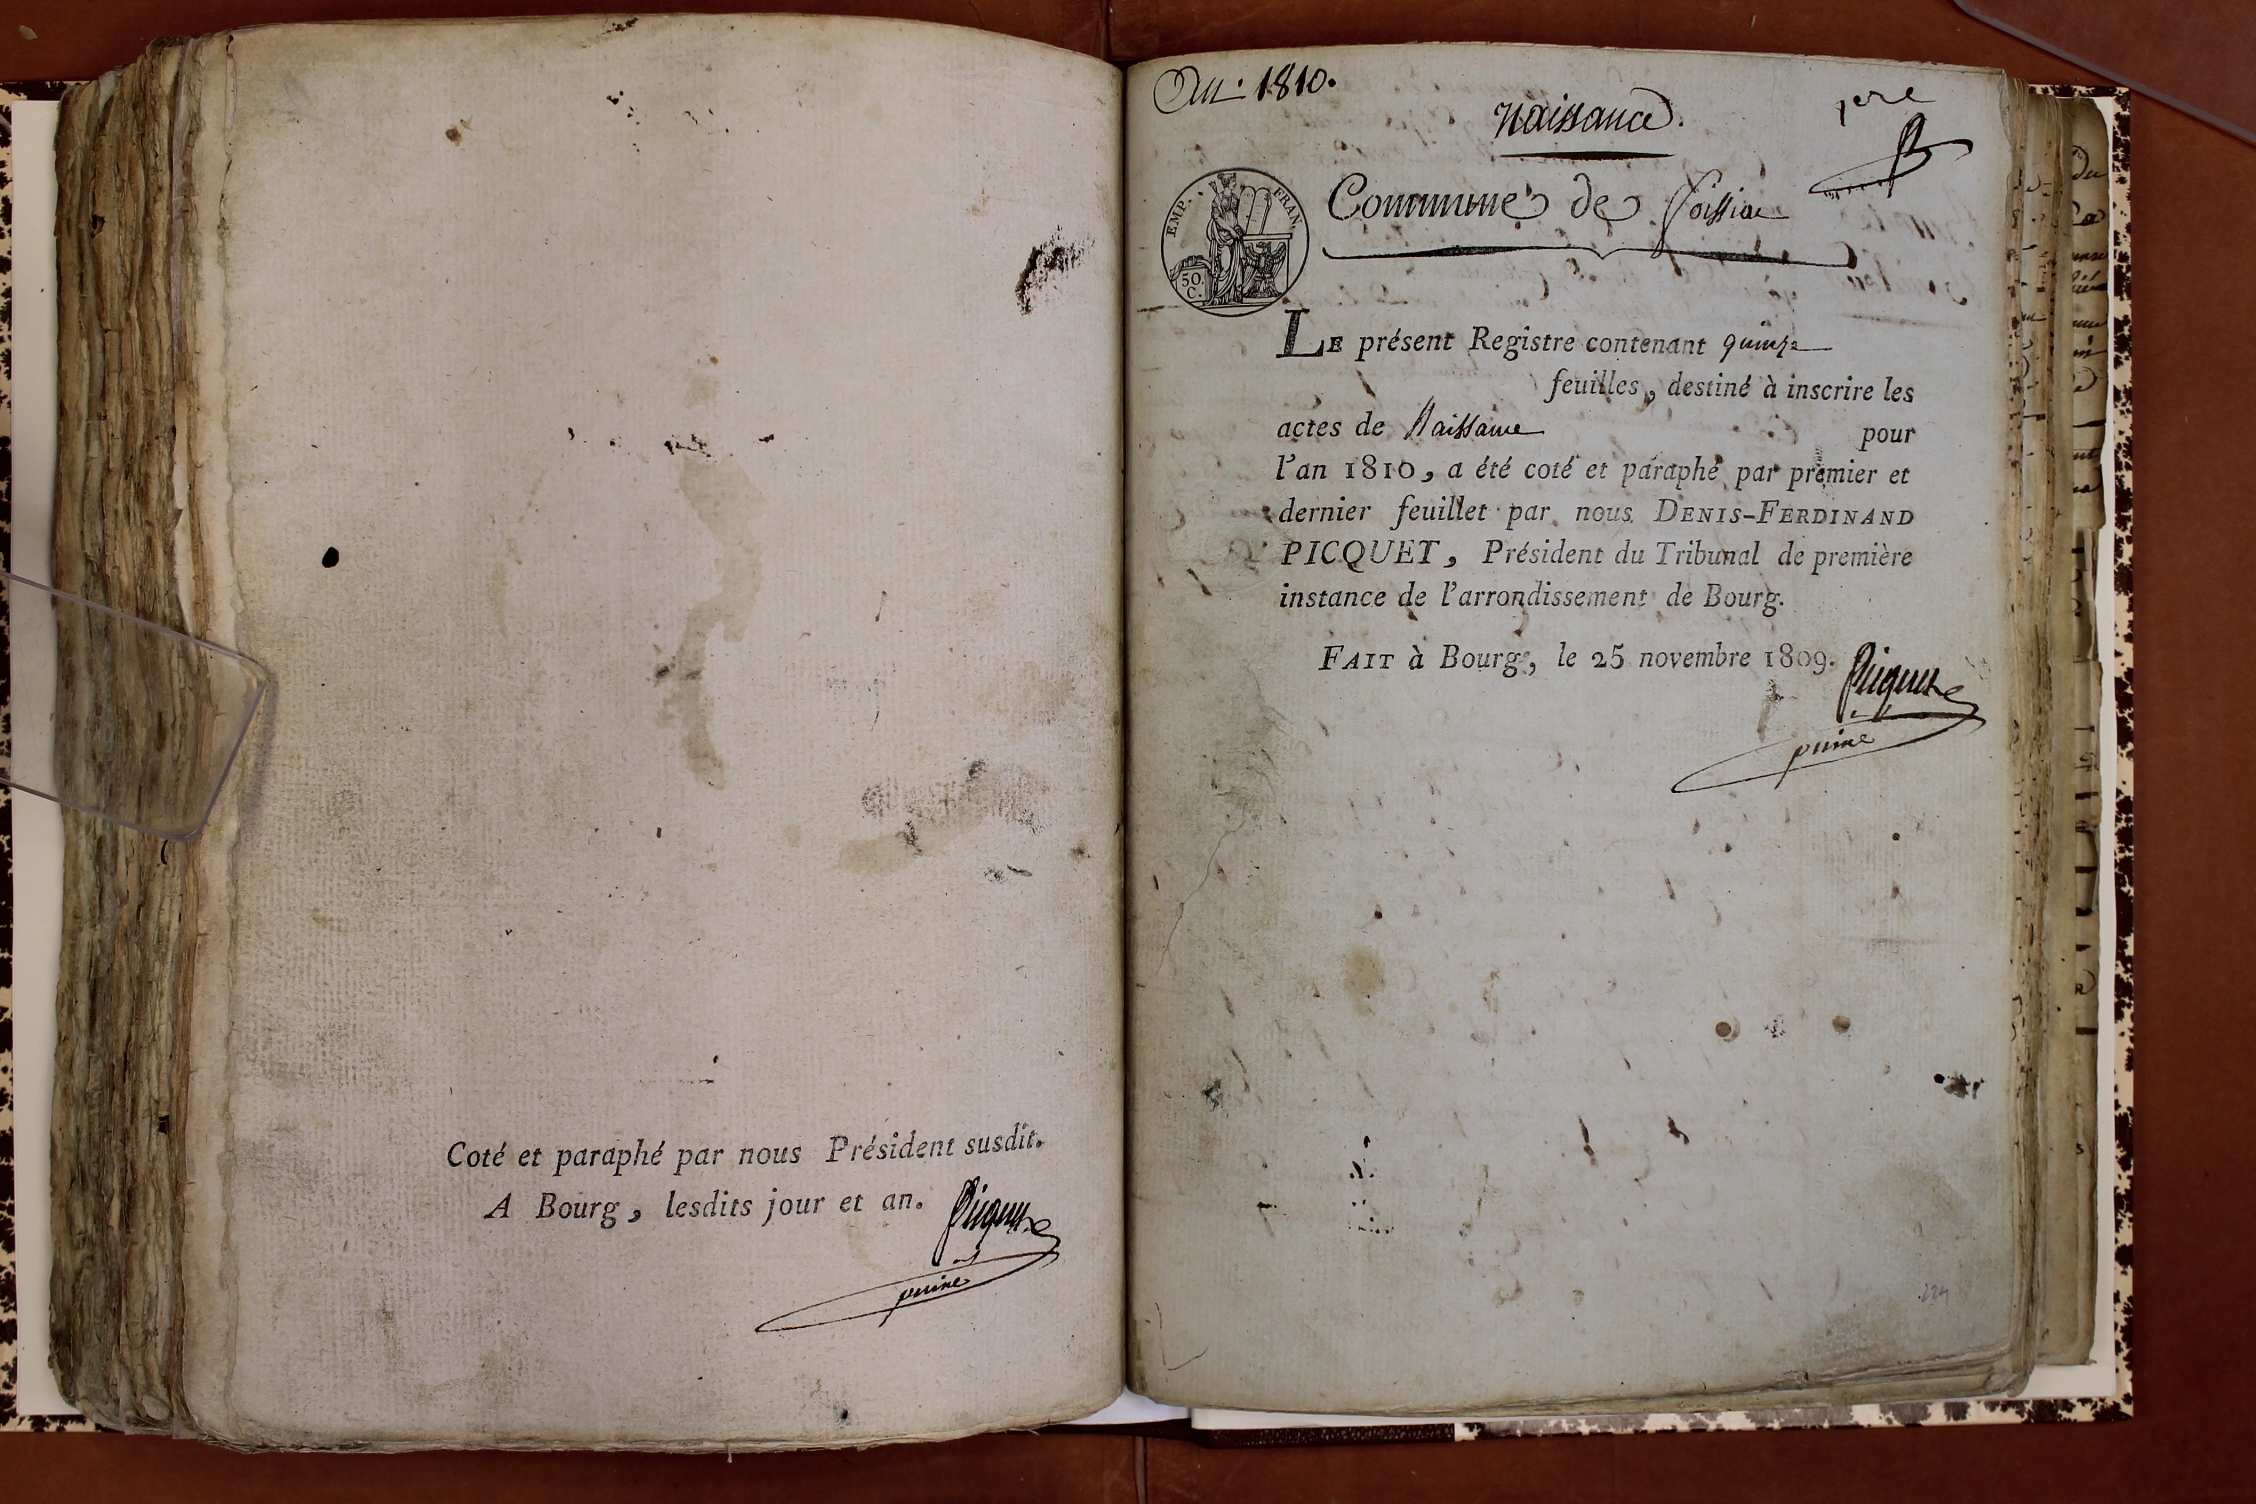 Coté et paraphé par nous Président susdit.
A Bourg, lesdits jour et an.
Picquet
puiné
An 1810.
1ere
Naissance.
EMP. FRAN.
50.
C.
Commune de Foissiat
LE présent Registre contenant quinze
feuilles, destiné à inscrire les
actes de Naissance pour
l'an 1810, a été coté et paraphé par premier et
dernier feuillet par nous DENIS-FERDINAND
PICQUET, Président du Tribunal de première
instance de l'arrondissement de Bourg.
FAIT à Bourg, le 25 novembre 1809.
Picquet
puiné